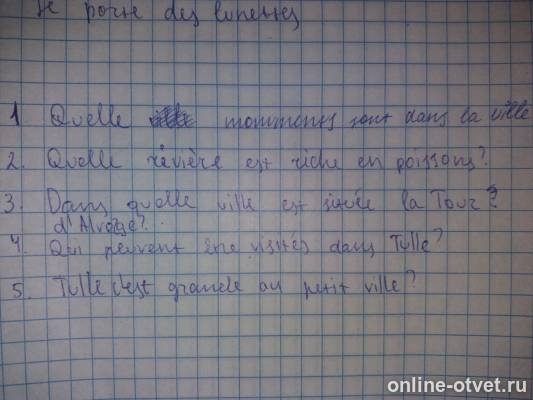 Je porte des lunettes
1 Quelle monments sont dans la ville
2. Quelle révière est riche en poissons?
3. Dans quelle ville est située la Tour?
d'Alvarge?
4. Qui peuvent être visités dans Tulle?
5. Tulle c'est grande ou petit ville?
online-otvet.ru